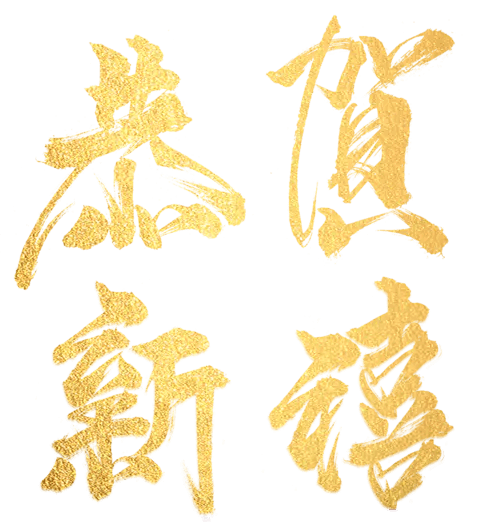 恭賀
新禧